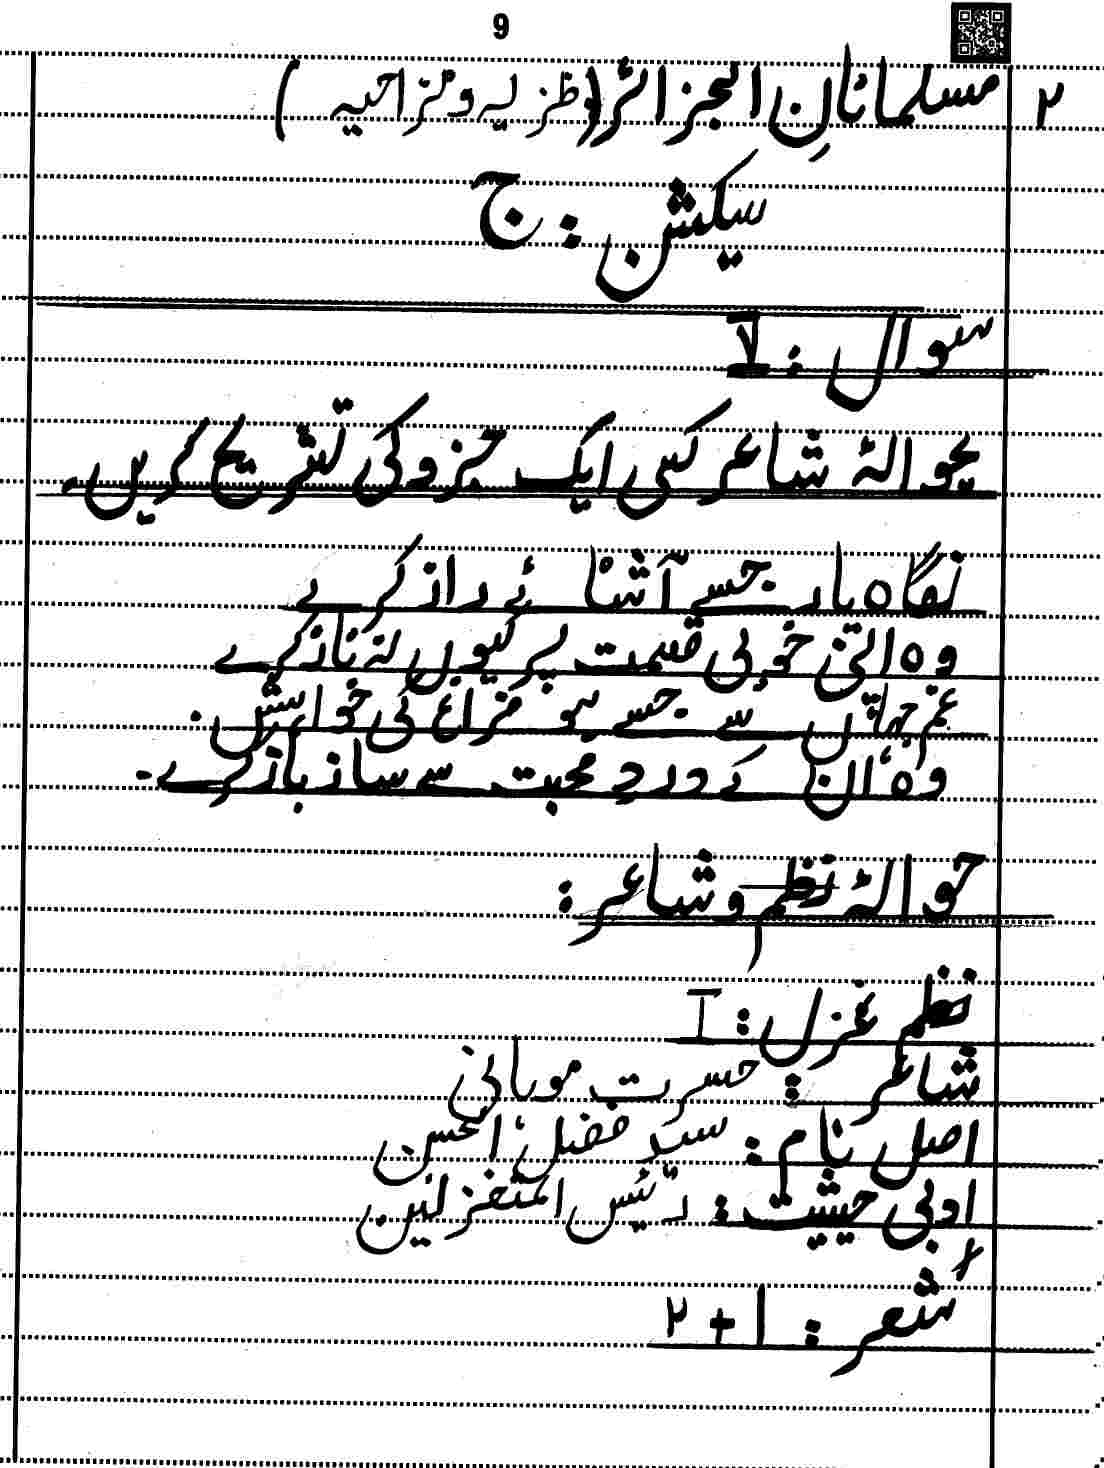 9
۲ مسلمانانِ الجزائر (طنزیہ و مزاحیہ)
سیکشن : ج
سوال : 7
بحوالۂ شاعر کسی ایک جزو کی تشریح کریں۔
نگاہ یار جسے آشنائے راز کرے
وہ اپنی خوبی قسمت پر کیوں نہ ناز کرے
غم جہاں سے جسے ہو فراغ کی خواہش۔
وہ اُن کے دردِ محبت سے ساز باز کرے۔
حوالہ نظم و شاعر :
نظم غزل : I
شاعر : حسرت موہانی
اصل نام : سید فضل الحسن
ادبی حیثیت : رئیس المتغزلین
شعر : ۱ + ۲